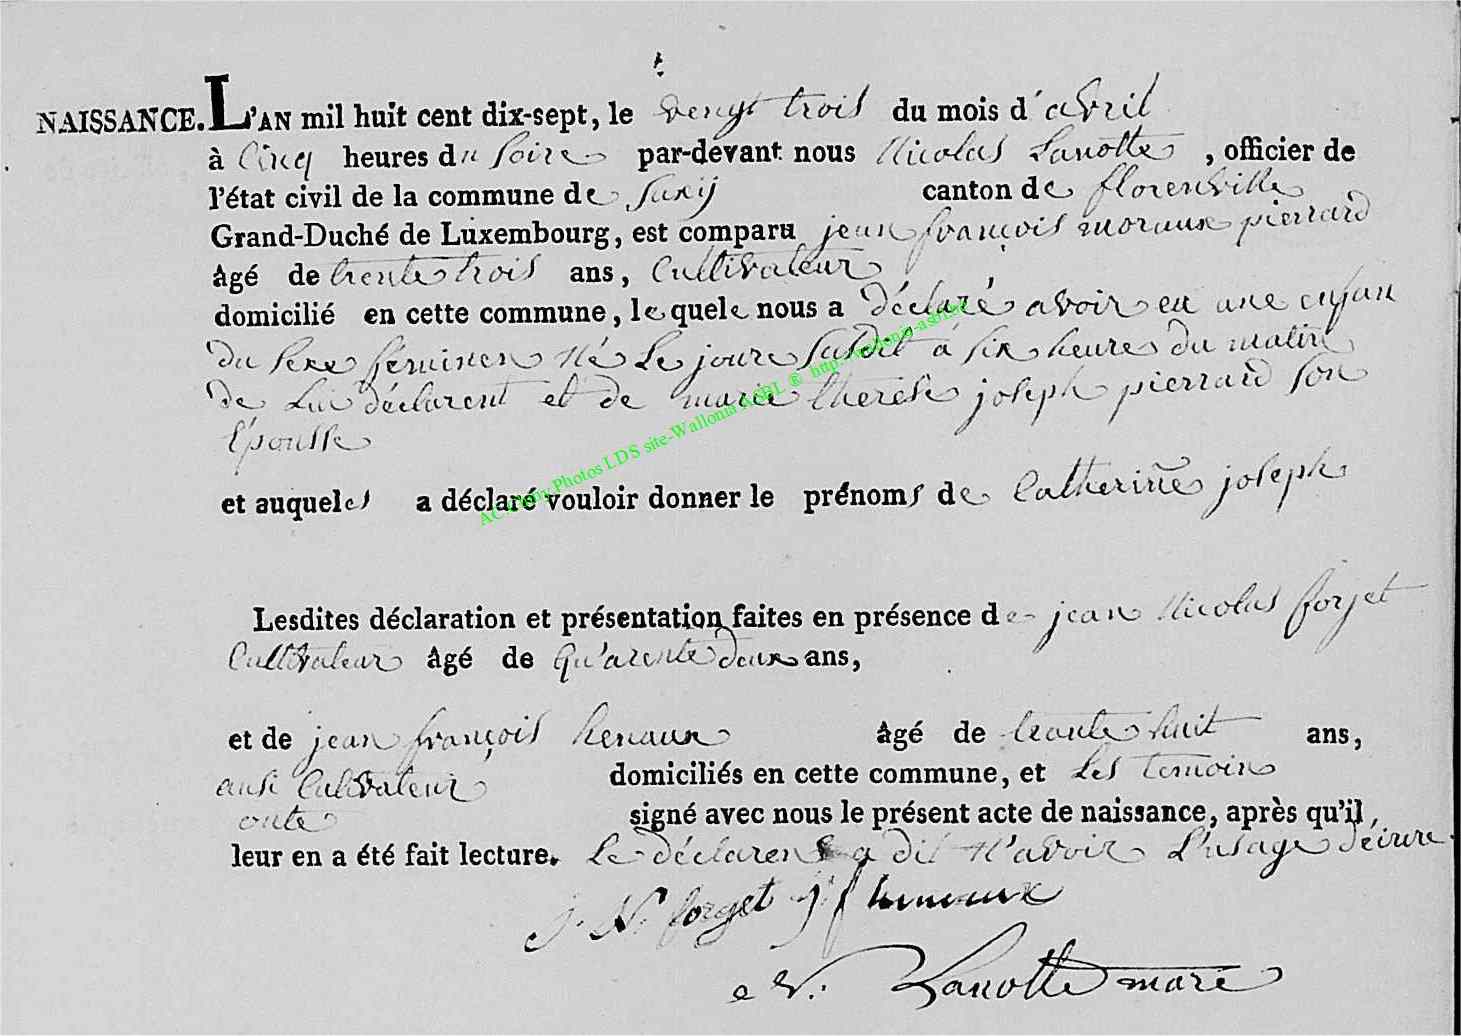 NAISSANCE. L'AN mil huit cent dix-sept, le vengt trois du mois d'avril
à Cinq heures du soire par-devant nous Nicolas Lanotte, officier de
l'état civil de la commune de Suxÿ canton de florenville
Grand-Duché de Luxembourg, est comparu jean françois moraux pierrard
âgé de trente trois ans, Cultivateur
domicilié en cette commune, lequele nous a déclaré avoir eu une enfan
du sexe féminen né le jour susdit à six heure du matin
de Lui déclarent et de marie therese joseph pierrard son
Épousse
et auqueles a déclaré vouloir donner le prénoms de Catherine joseph
Lesdites déclaration et présentation faites en présence de jean Nicolas forjet
Cultivateur âgé de qu'arente deux ans,
et de jean françois henaux âgé de trante huit ans,
ausi Cultivateur domiciliés en cette commune, et les temoin
onte signé avec nous le présent acte de naissance, après qu'il
leur en a été fait lecture. Le déclarent a dit N'avoir L'usage décrire
J. N. forget j f henaux
N. Lanotte mare
Académy Photos LDS site-Wallonia ASBL ® http://wallonia-asbl.be